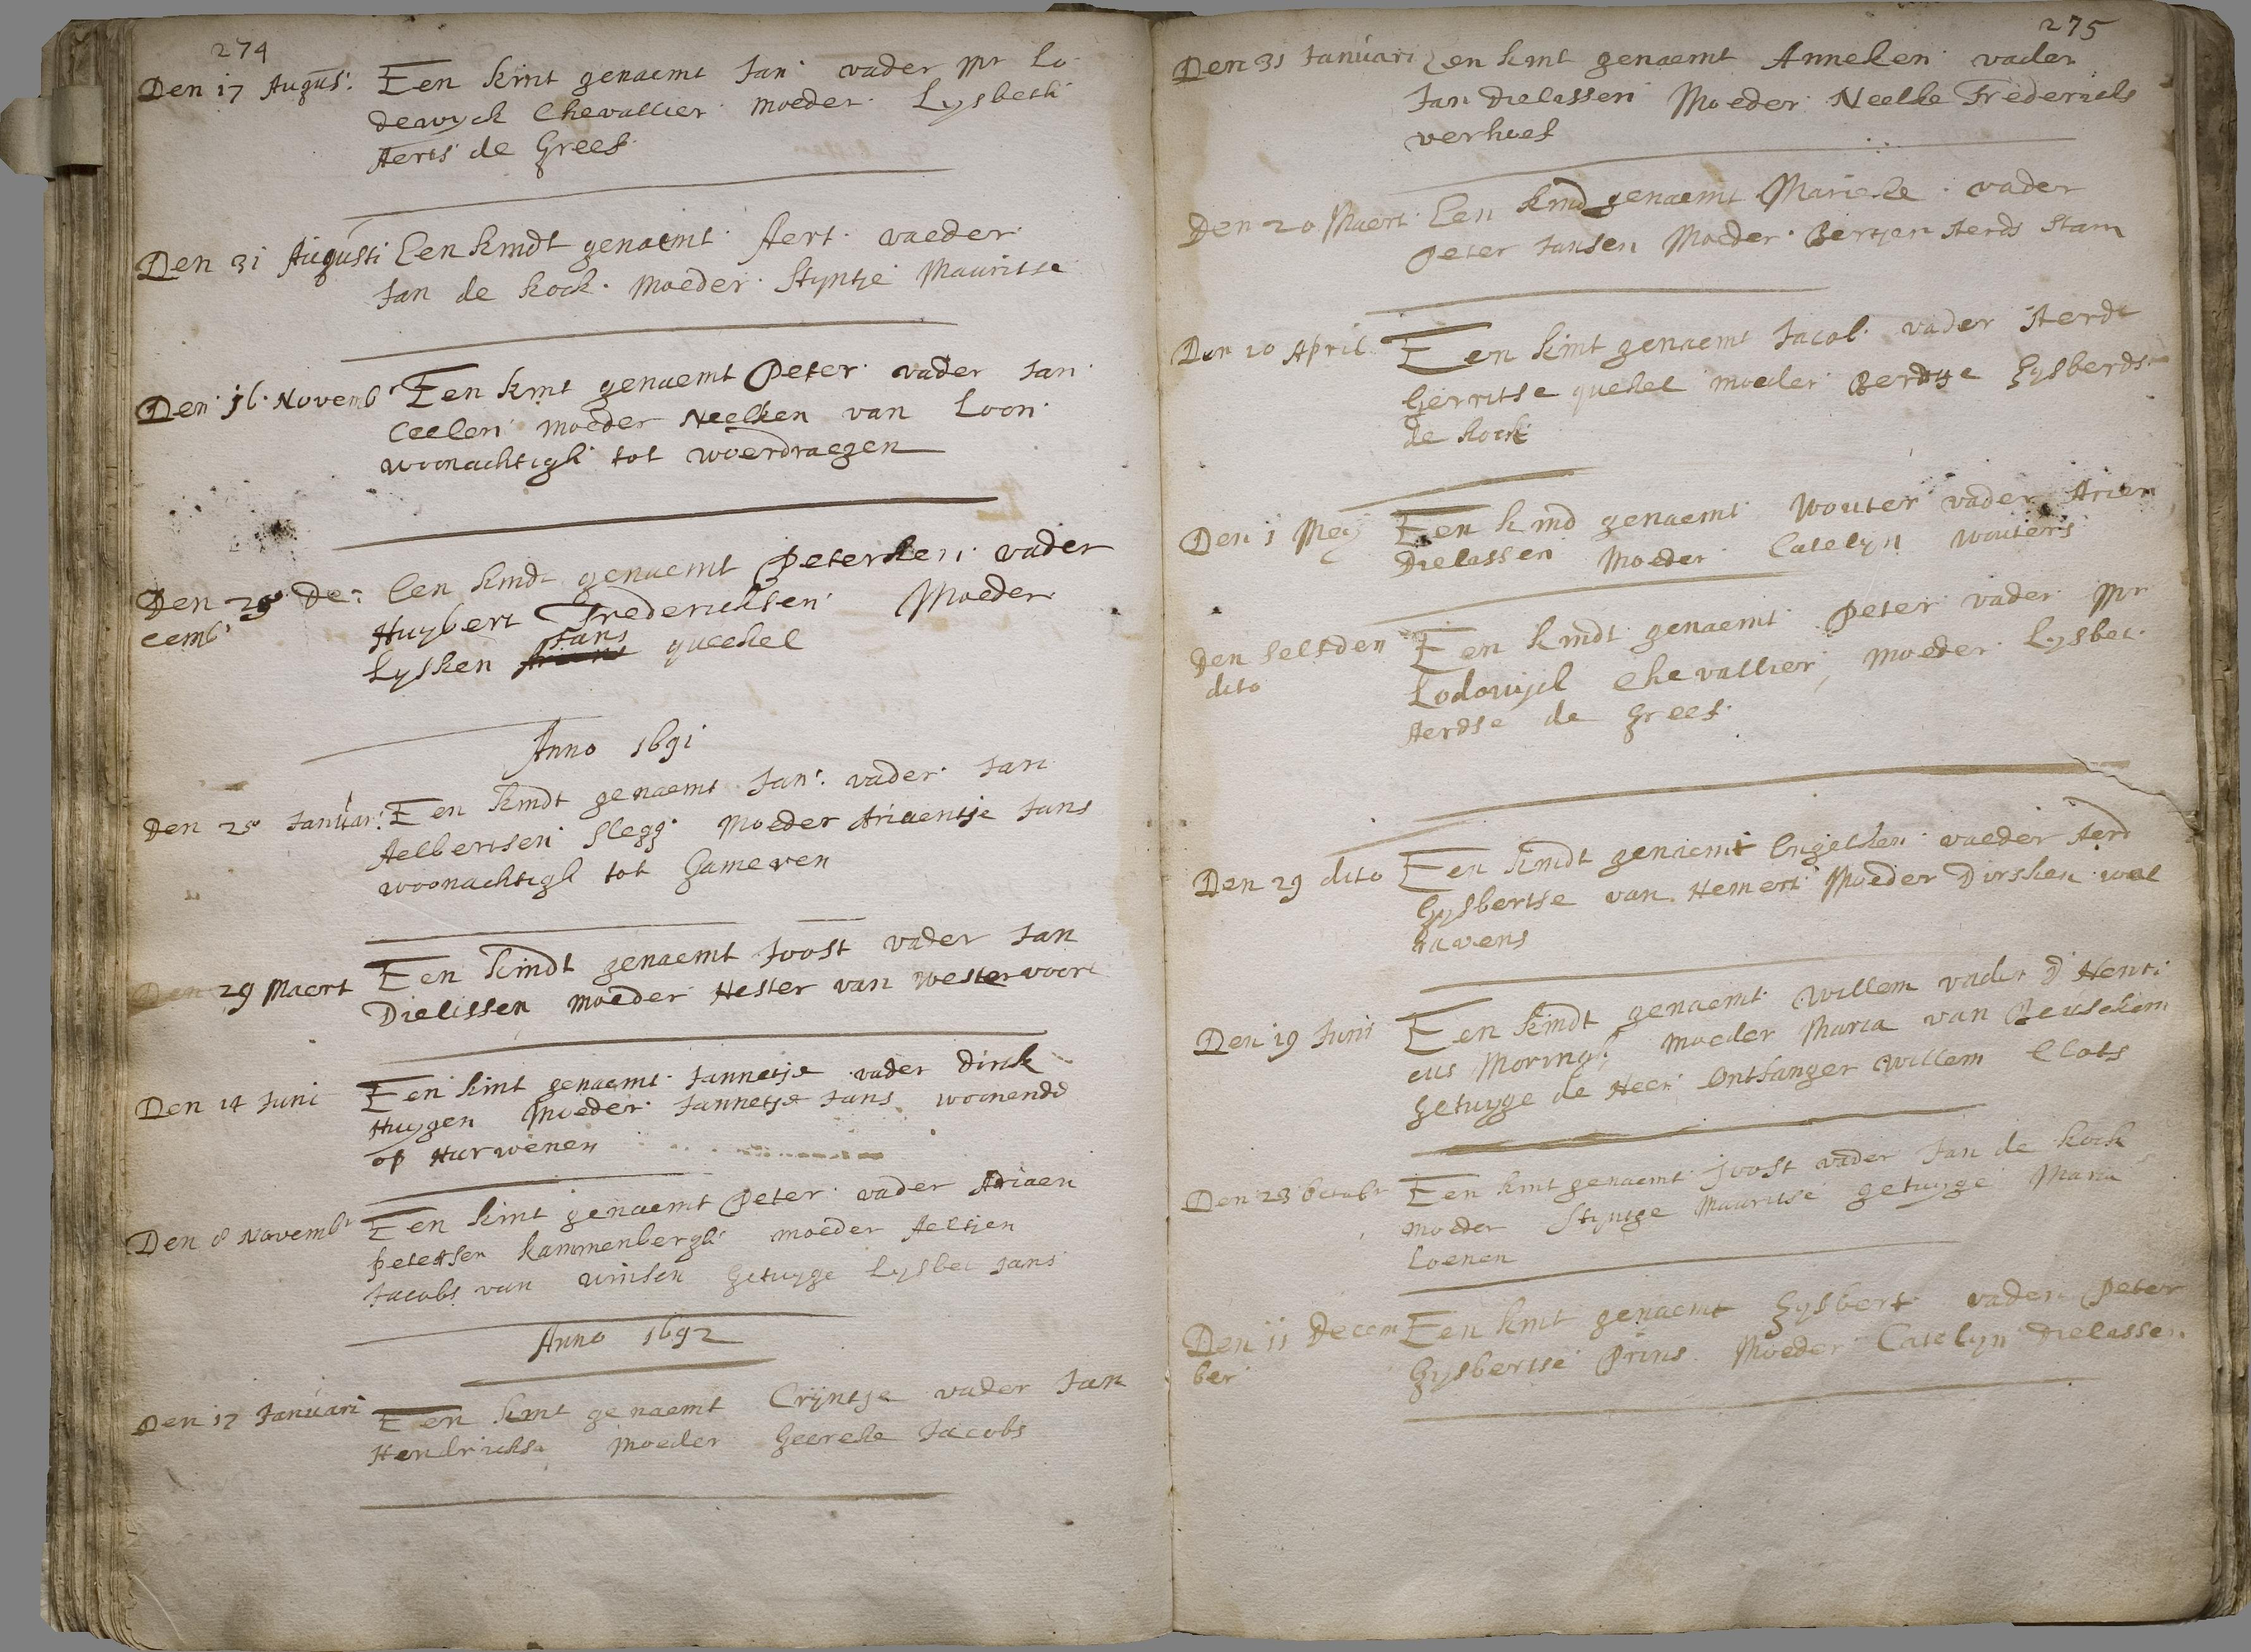 274
Den 17 Augus: Een kint genaemt Jan vader Mr Lo-
dewyck Chevallier moeder Lysbeth
Aerts de Greef
Den 31 Augusti Een kindt genaemt Aert vaeder
Jan de kock. moeder Styntje Mauritse
Den 16 Novemb Een kint genaemt Peter vader Jan
Ceelen moeder Neelken van Loon
woonachtigh tot woerdraegen
Den 28 De= Een kindt genaemt Peterken vader
cemb Huybert Frederichsen Moeder
Jans
Lysken queekel
Anno 1691
Den 28 Januar: Een kindt genaemt Jan. vader Jan
Aelbertsen Slegg moeder Ariaentje Jans
woonachtigh tot Gameren
Den 29 Maert Een kindt genaemt Joost vader Jan
Dielissen moeder Hester van Westervoort
Den 14 Juni Een kint genaemt Jannetje vader Dirck
Huygen Moeder Jannetje Jans woonende
op Hurwenen
Den 8 Novembr Een kint genaemt Peter vader Adriaen
Petersen kammenbergh moeder Aeltjen
Jacobs van getuyge Lysbet Jans
Anno 1692
Den 17 Januari Een kint genaemt Crijntje vader Jan
Hendrickse moeder Geereke Jacobs
275
Den 31 Januari Een kint genaemt Anneken vader
Jan Dielassen Moeder Neelke Fredericks
verhoef
Den 20 Maert Een kind genaemt Marieke vader
Peter Jansen Moeder Bertjen Aerds Stam
Den 10 April Een kint genaemt Jacob vader Aerdt
Gerritse quekel moeder Berdtje Gysberds
de kock
Den 1 Mey Een kind genaemt Wouter vader Arien
Dielassen Moeder Catelyn Wouters
den selfden Een kindt genaemt Peter vader Mr
dito Lodowijck Chevallier, moeder Lysbet
Aerdse de Greef
Den 29 dito Een kindt genaemt Engelken vaeder Aerd
Gysbertse van Hemert Moeder Dirsken wal
ravens
Den 19 Juni Een kindt genaemt Willem vader D Henri
cus Moringh moeder Maria van Beusekom
Getuyge de Heer Ontfanger Willem Clots
Den 23 Octobr Een kint genaemt Joost vader Jan de kock
moeder Styntge Mauritse getuyge Maria
Loenen
Den 11 Decem Een kint genaemt Gysbert vader Peter
ber Gysbertse Prins Moeder Catelyn Dielassen